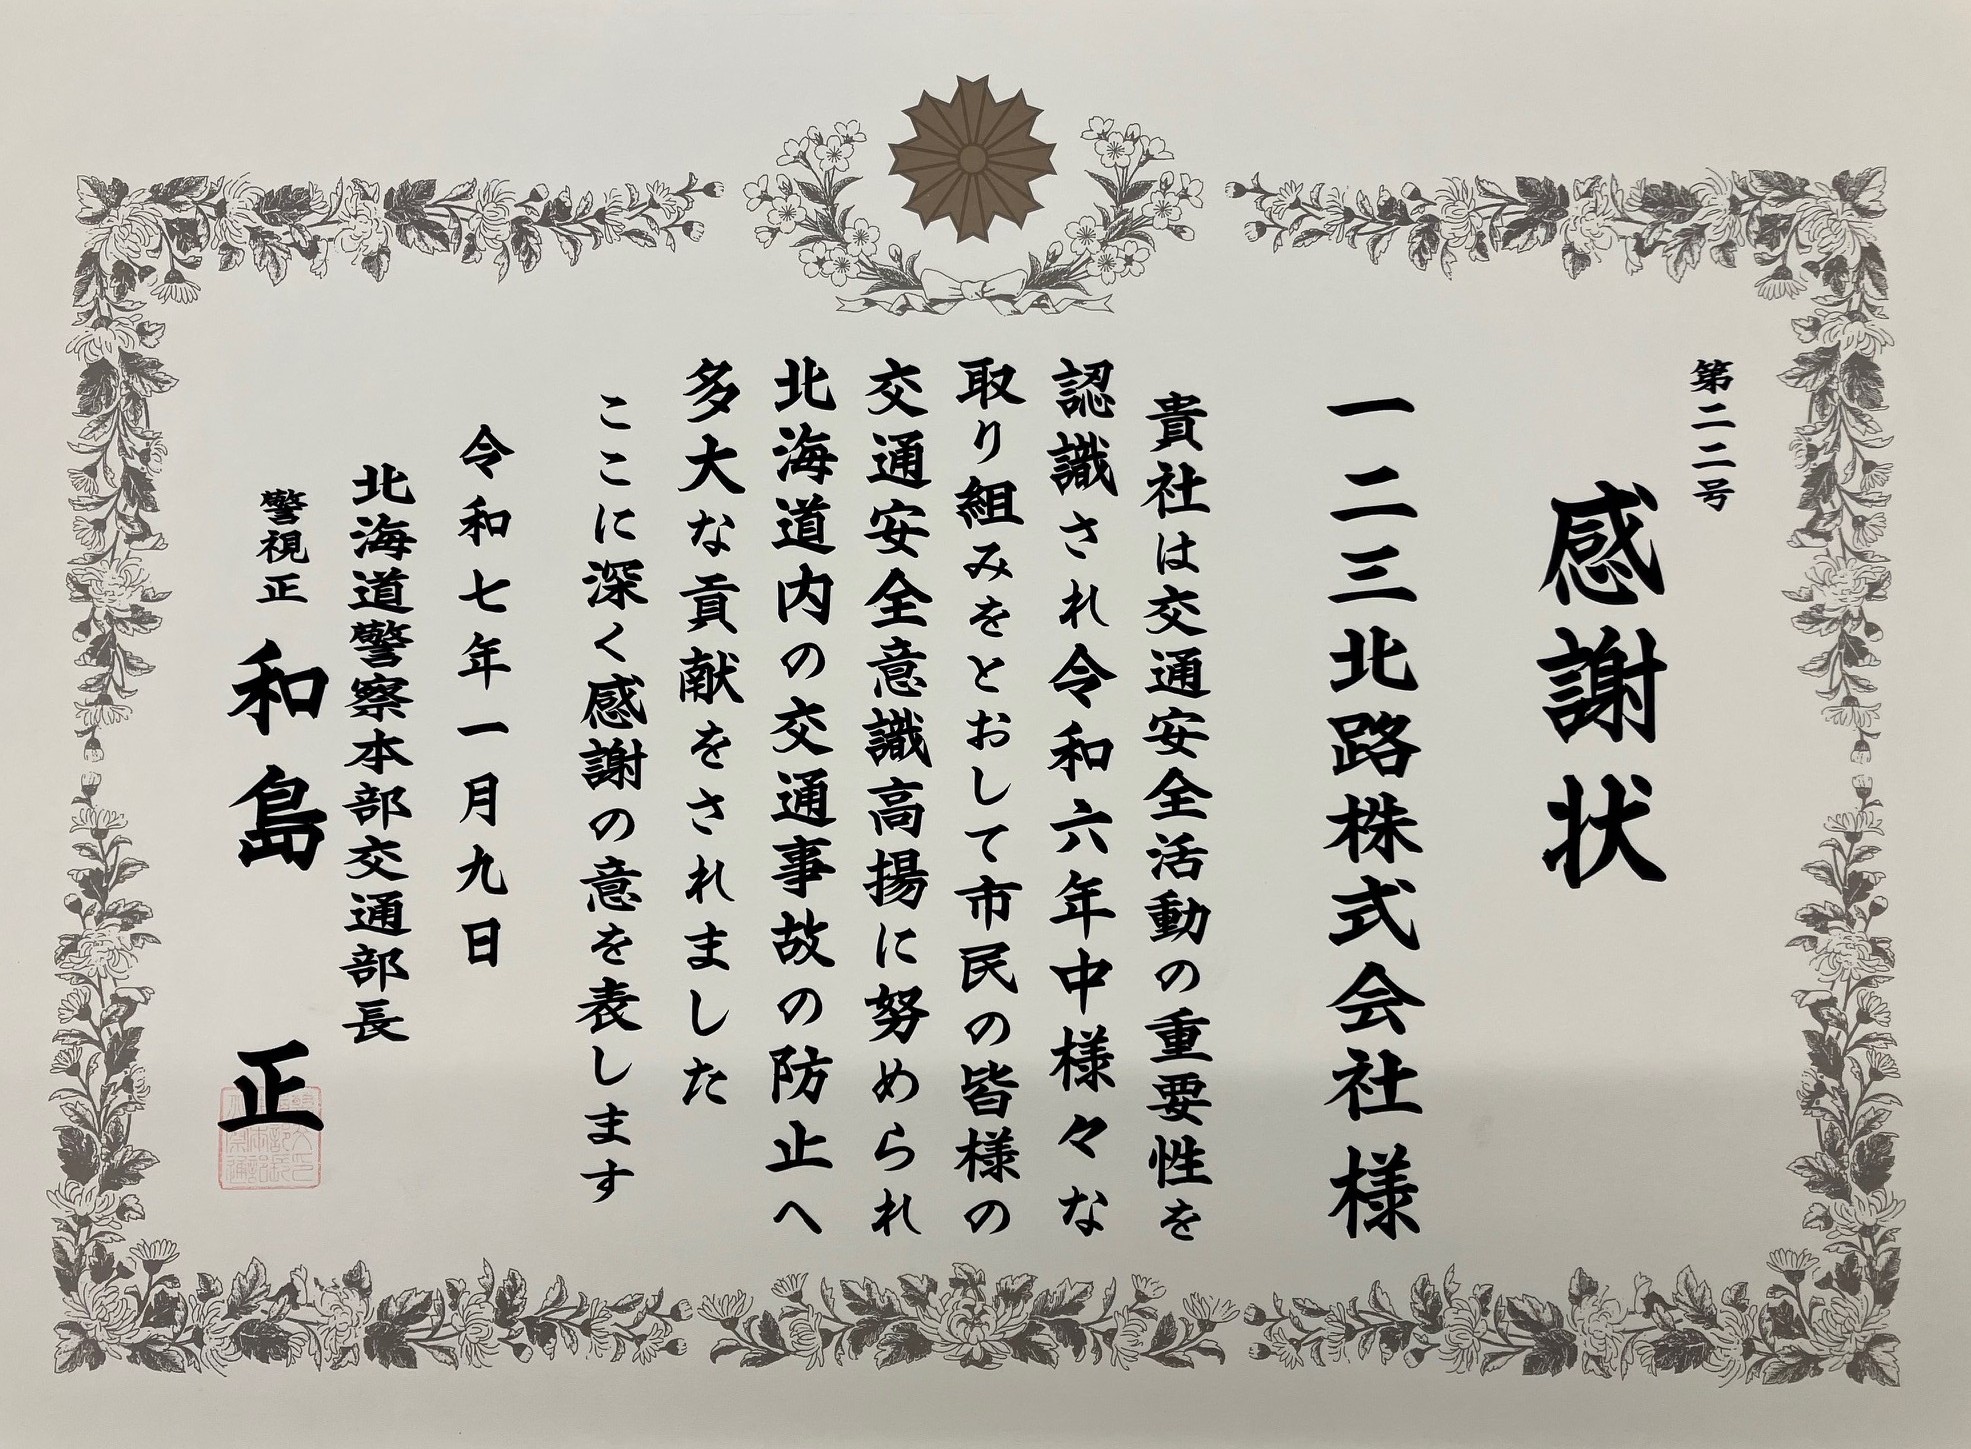 第二二号
感謝状
一二三北路株式会社様
貴社は交通安全活動の重要性を
認識され令和六年中様々な
取り組みをとおして市民の皆様の
交通安全意識高揚に努められ
北海道内の交通事故の防止へ
多大な貢献をされました
ここに深く感謝の意を表します
令和七年一月九日
北海道警察本部交通部長
警視正 和島 正